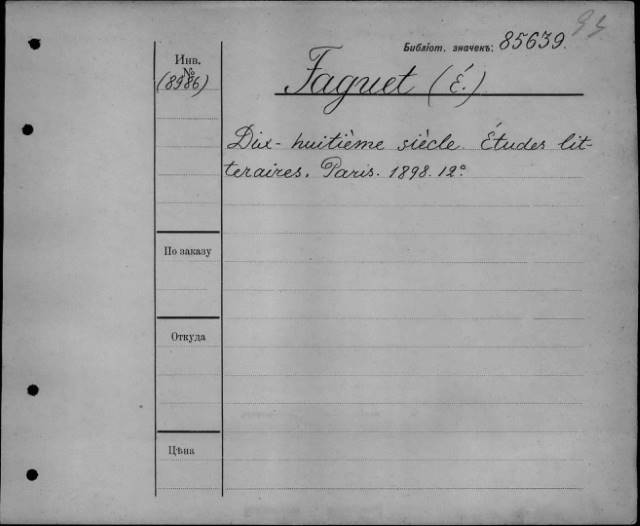 94
Библіот. значекъ: 85639.
Инв.
№
(8986)
Faguet (É.)
Dix-huitième siècle. Études lit-
teraires. Paris. 1898. 12°
По заказу
Откуда
Цѣна